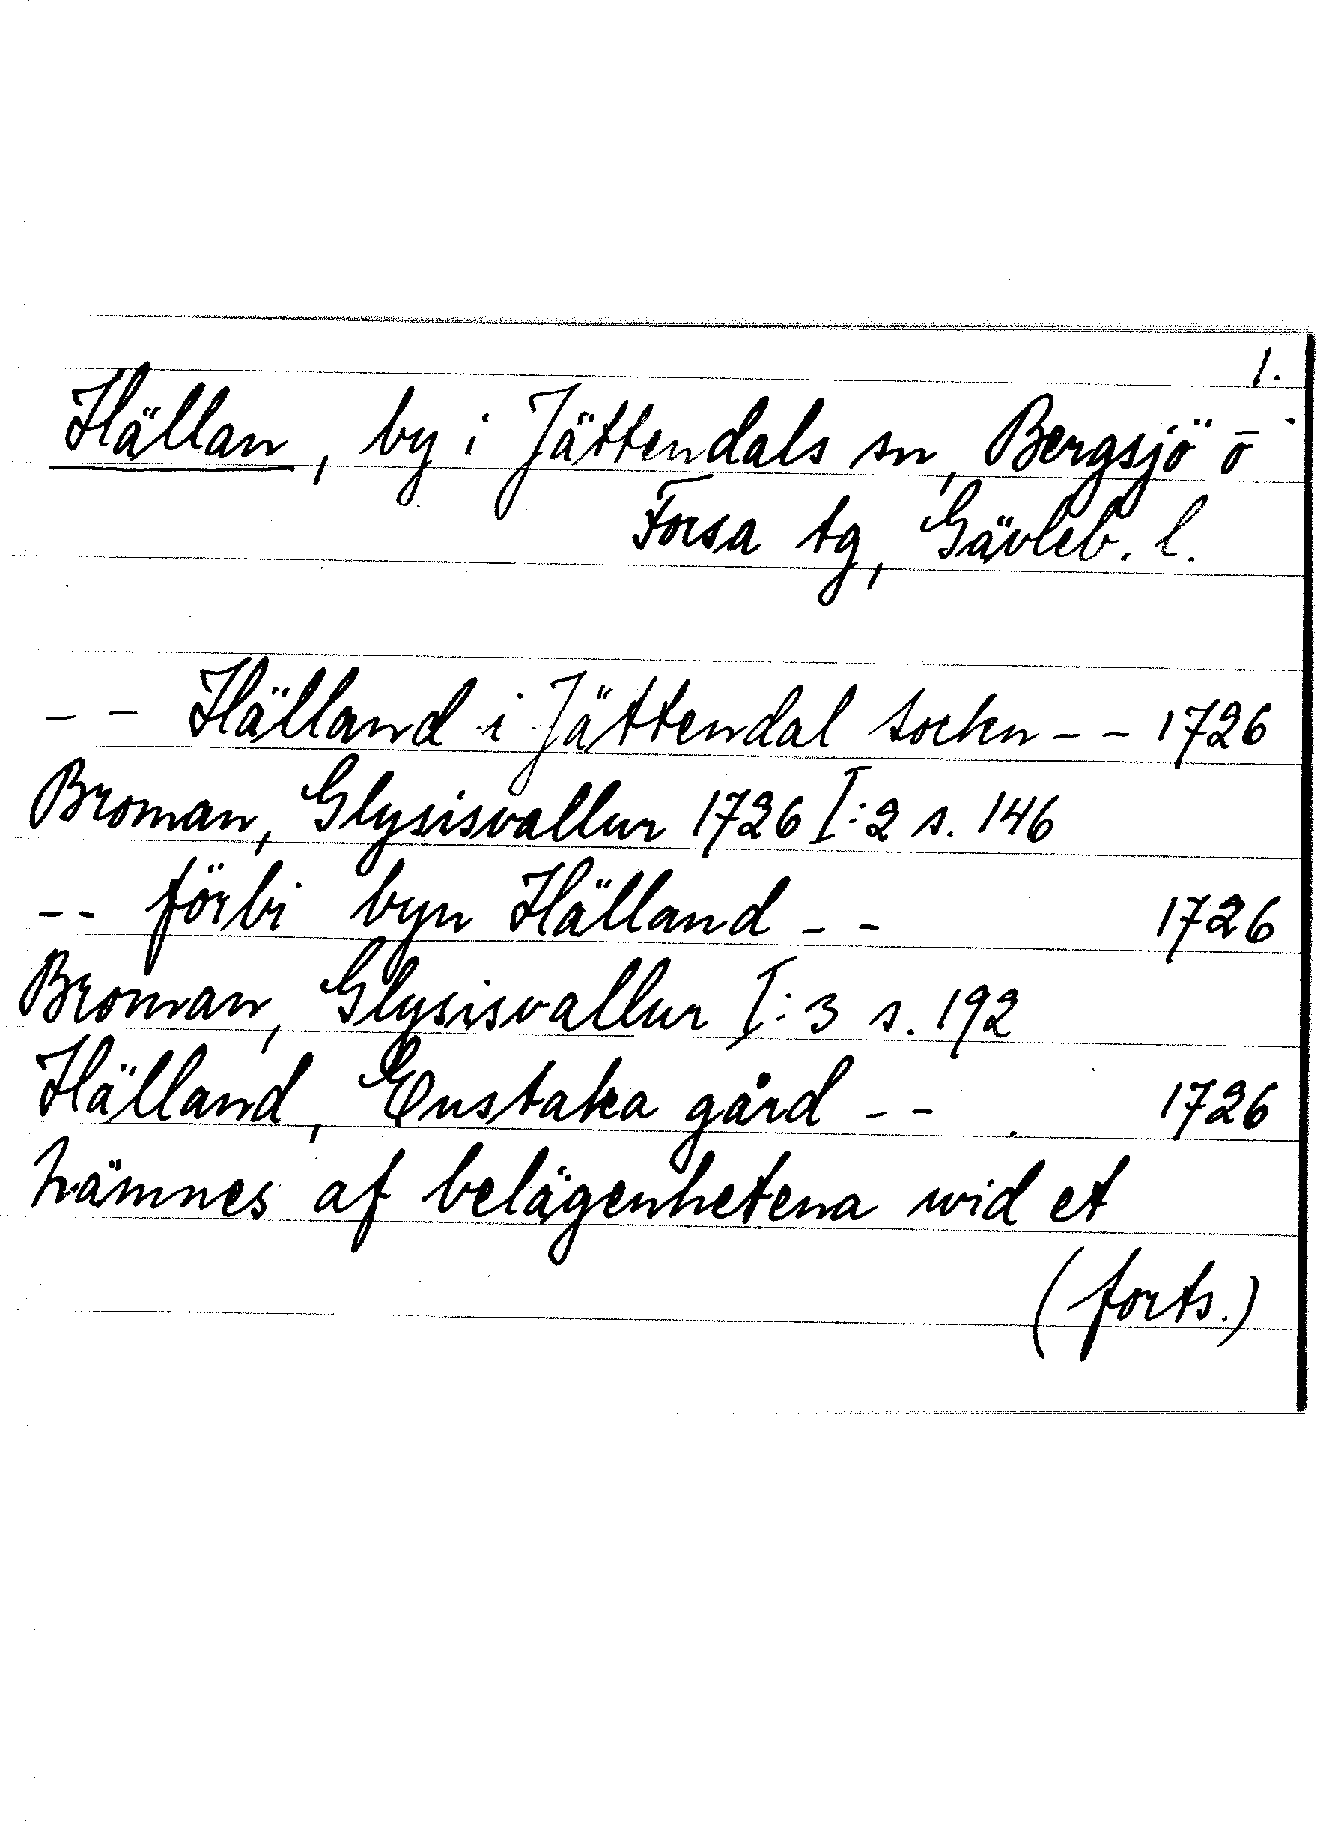 1.
Hällan, by i Jättendals sn, Bergsjö o
Forsa tg, Gävleb. l.
-- Hälland i Jättendal sockn -- 1726
Broman, Glysisvallur 1726 I:2 s. 146
-- förbi byn Hälland -- 1726
Broman, Glysisvallur I:3 s. 192
Hälland, Enstaka gård -- 1726
nämnes af belägenhetena wid et
(forts.)